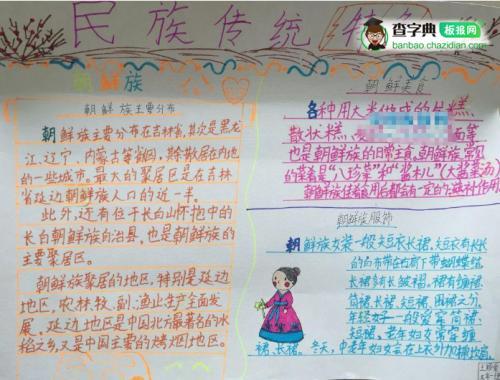 民族传统
查字典
板报网
banbao.chazidian.com
朝鲜族
朝鲜族主要分布
朝鲜族主要分布在吉林省,其次是黑龙
江、辽宁、内蒙古等省区,其余散居在内地
的一些城市。最大的聚居区是在吉林
省延边朝鲜族人口的近一半。
此外,还有位于长白山怀抱中的
长白朝鲜族自治县,也是朝鲜族的
主要聚居区。
朝鲜族聚居的地区,特别是延边
地区,农、林、牧、副、渔业生产全面发
展。延边地区是中国北方最著名的水
稻之乡,又是中国主要的烤烟地区。
朝鲜美食
各种用大米做成的片糕、
散状糕、
也是朝鲜族的日常主食。朝鲜族常见
的菜肴是“八珍菜”和“酱木儿”(大酱菜汤)
朝鲜族服饰
朝鲜族女装一般短衣长裙,短衣有长长
的白布带在右肩下带蝴蝶结
长裙多有长皱褶。裙有缠裙、
筒裙、长裙、短裙、围裙之分。
年轻女子一般爱穿筒裙、
短裙。老年妇女常穿缠
裙、长裙。冬天,中老年妇女会在上衣外加